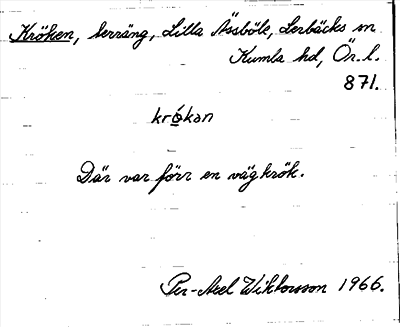 Kröken, terräng, Lilla Ässböle, Lerbäcks sn
Kumla hd, Ör. l.
871.
krǿkən
Där var förr en vägkrök.
Per-Axel Wiktorsson 1966.